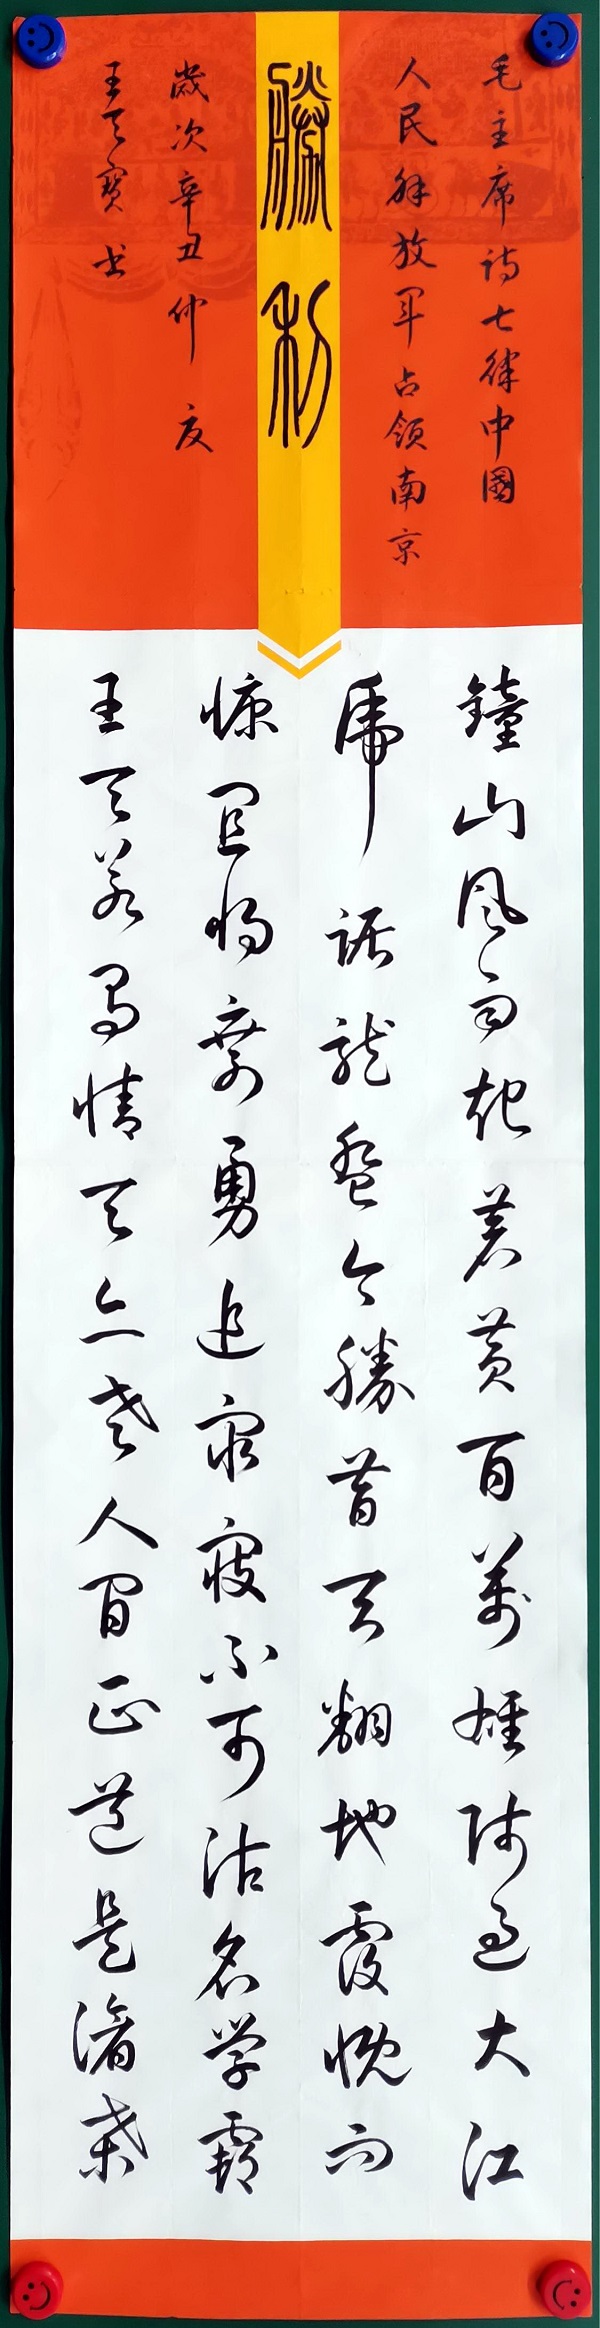 毛主席诗七律中國
人民解放军占领南京
勝利
歲次辛丑仲夏
王天寶书
鐘山风雨起苍黄百萬雄师过大江
虎踞龙盘今勝昔天翻地覆慨而
慷宜将剩勇追穷寇不可沽名学霸
王天若有情天亦老人间正道是滄桑